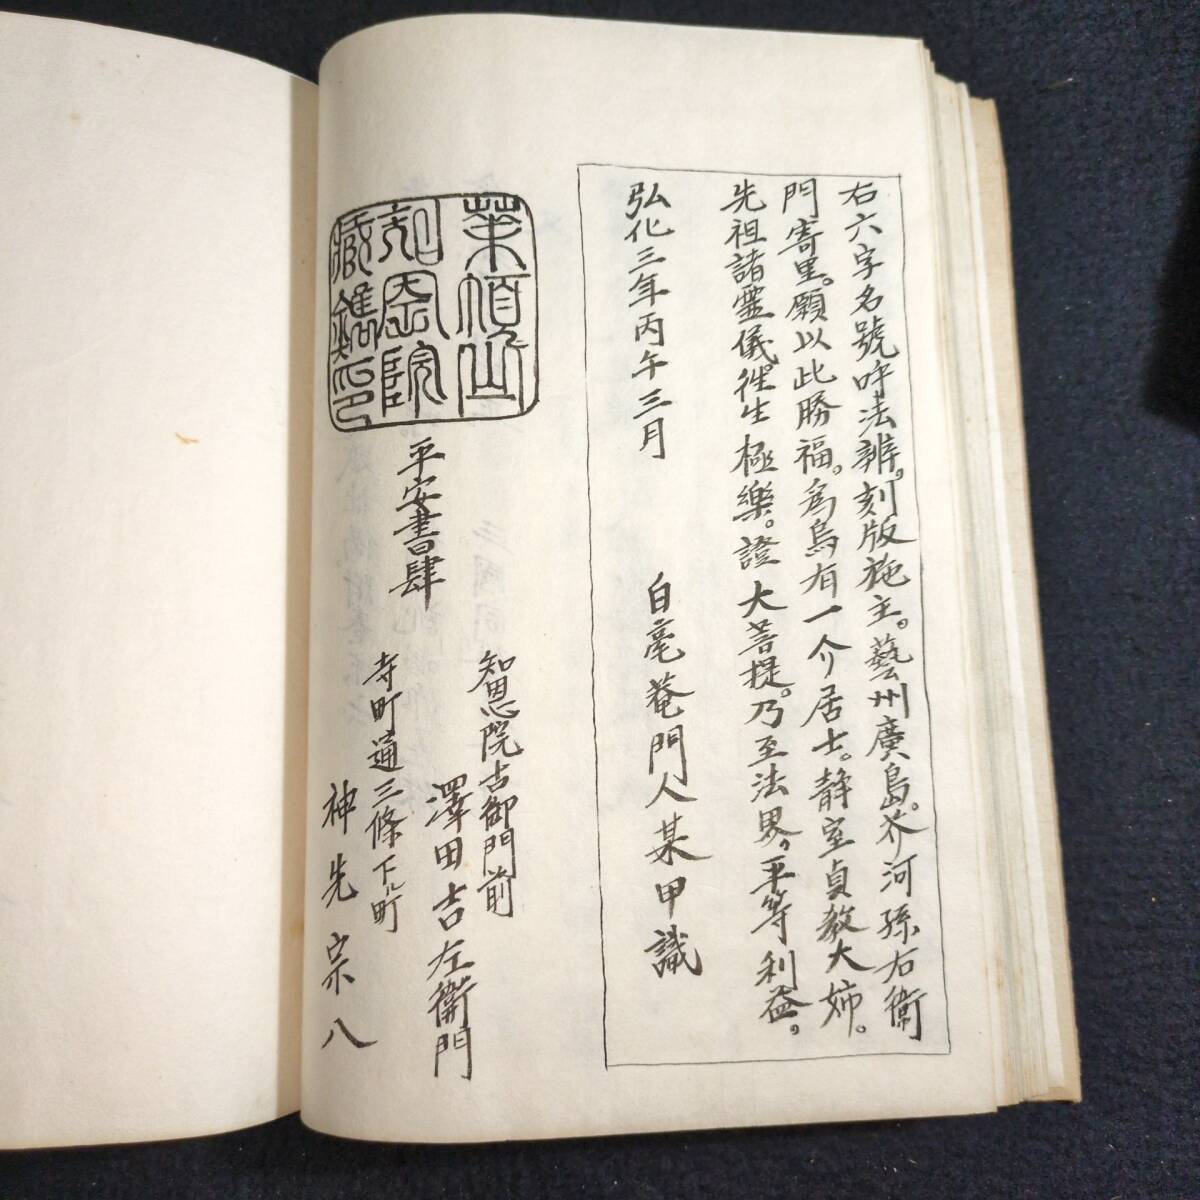 右六字名號吽法辨。刻版施主。藝州廣島。芥河孫右衞
門寄里。願以此勝福。爲烏有一介居士。静室貞教大姉。
先祖諸霊儀。徃生極樂。證大菩提。乃至法界。平等利益。
弘化三年丙午三月
白毫菴門人某甲識
華頂山
知恩院
藏鐫印
平安書肆
智恩院古御門前
澤田吉左衞門
寺町通三條下ル町
神先宗八